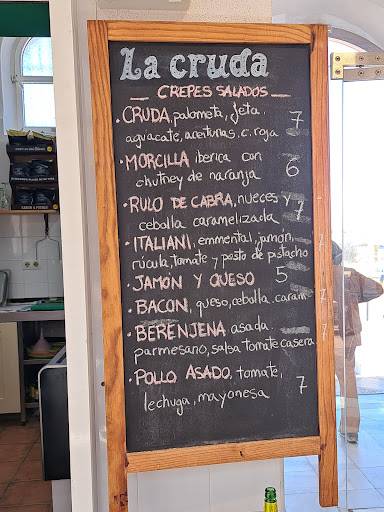 La cruda
CREPES SALADOS
• CRUDA, palometa, feta,
aguacate, aceitunas, c. roja 7
• MORCILLA iberica con
chutney de naranja 6
• RULO DE CABRA, nueces y
cebolla caramelizada 7
• ITALIANI, emmental, jamón,
rúcula, tomate y pesto de pistacho 7
• JAMON Y QUESO 5
• BACON, queso, cebolla caram. 7
• BERENJENA asada 7
parmesano, salsa tomate casera
• POLLO ASADO, tomate,
lechuga, mayonesa 7